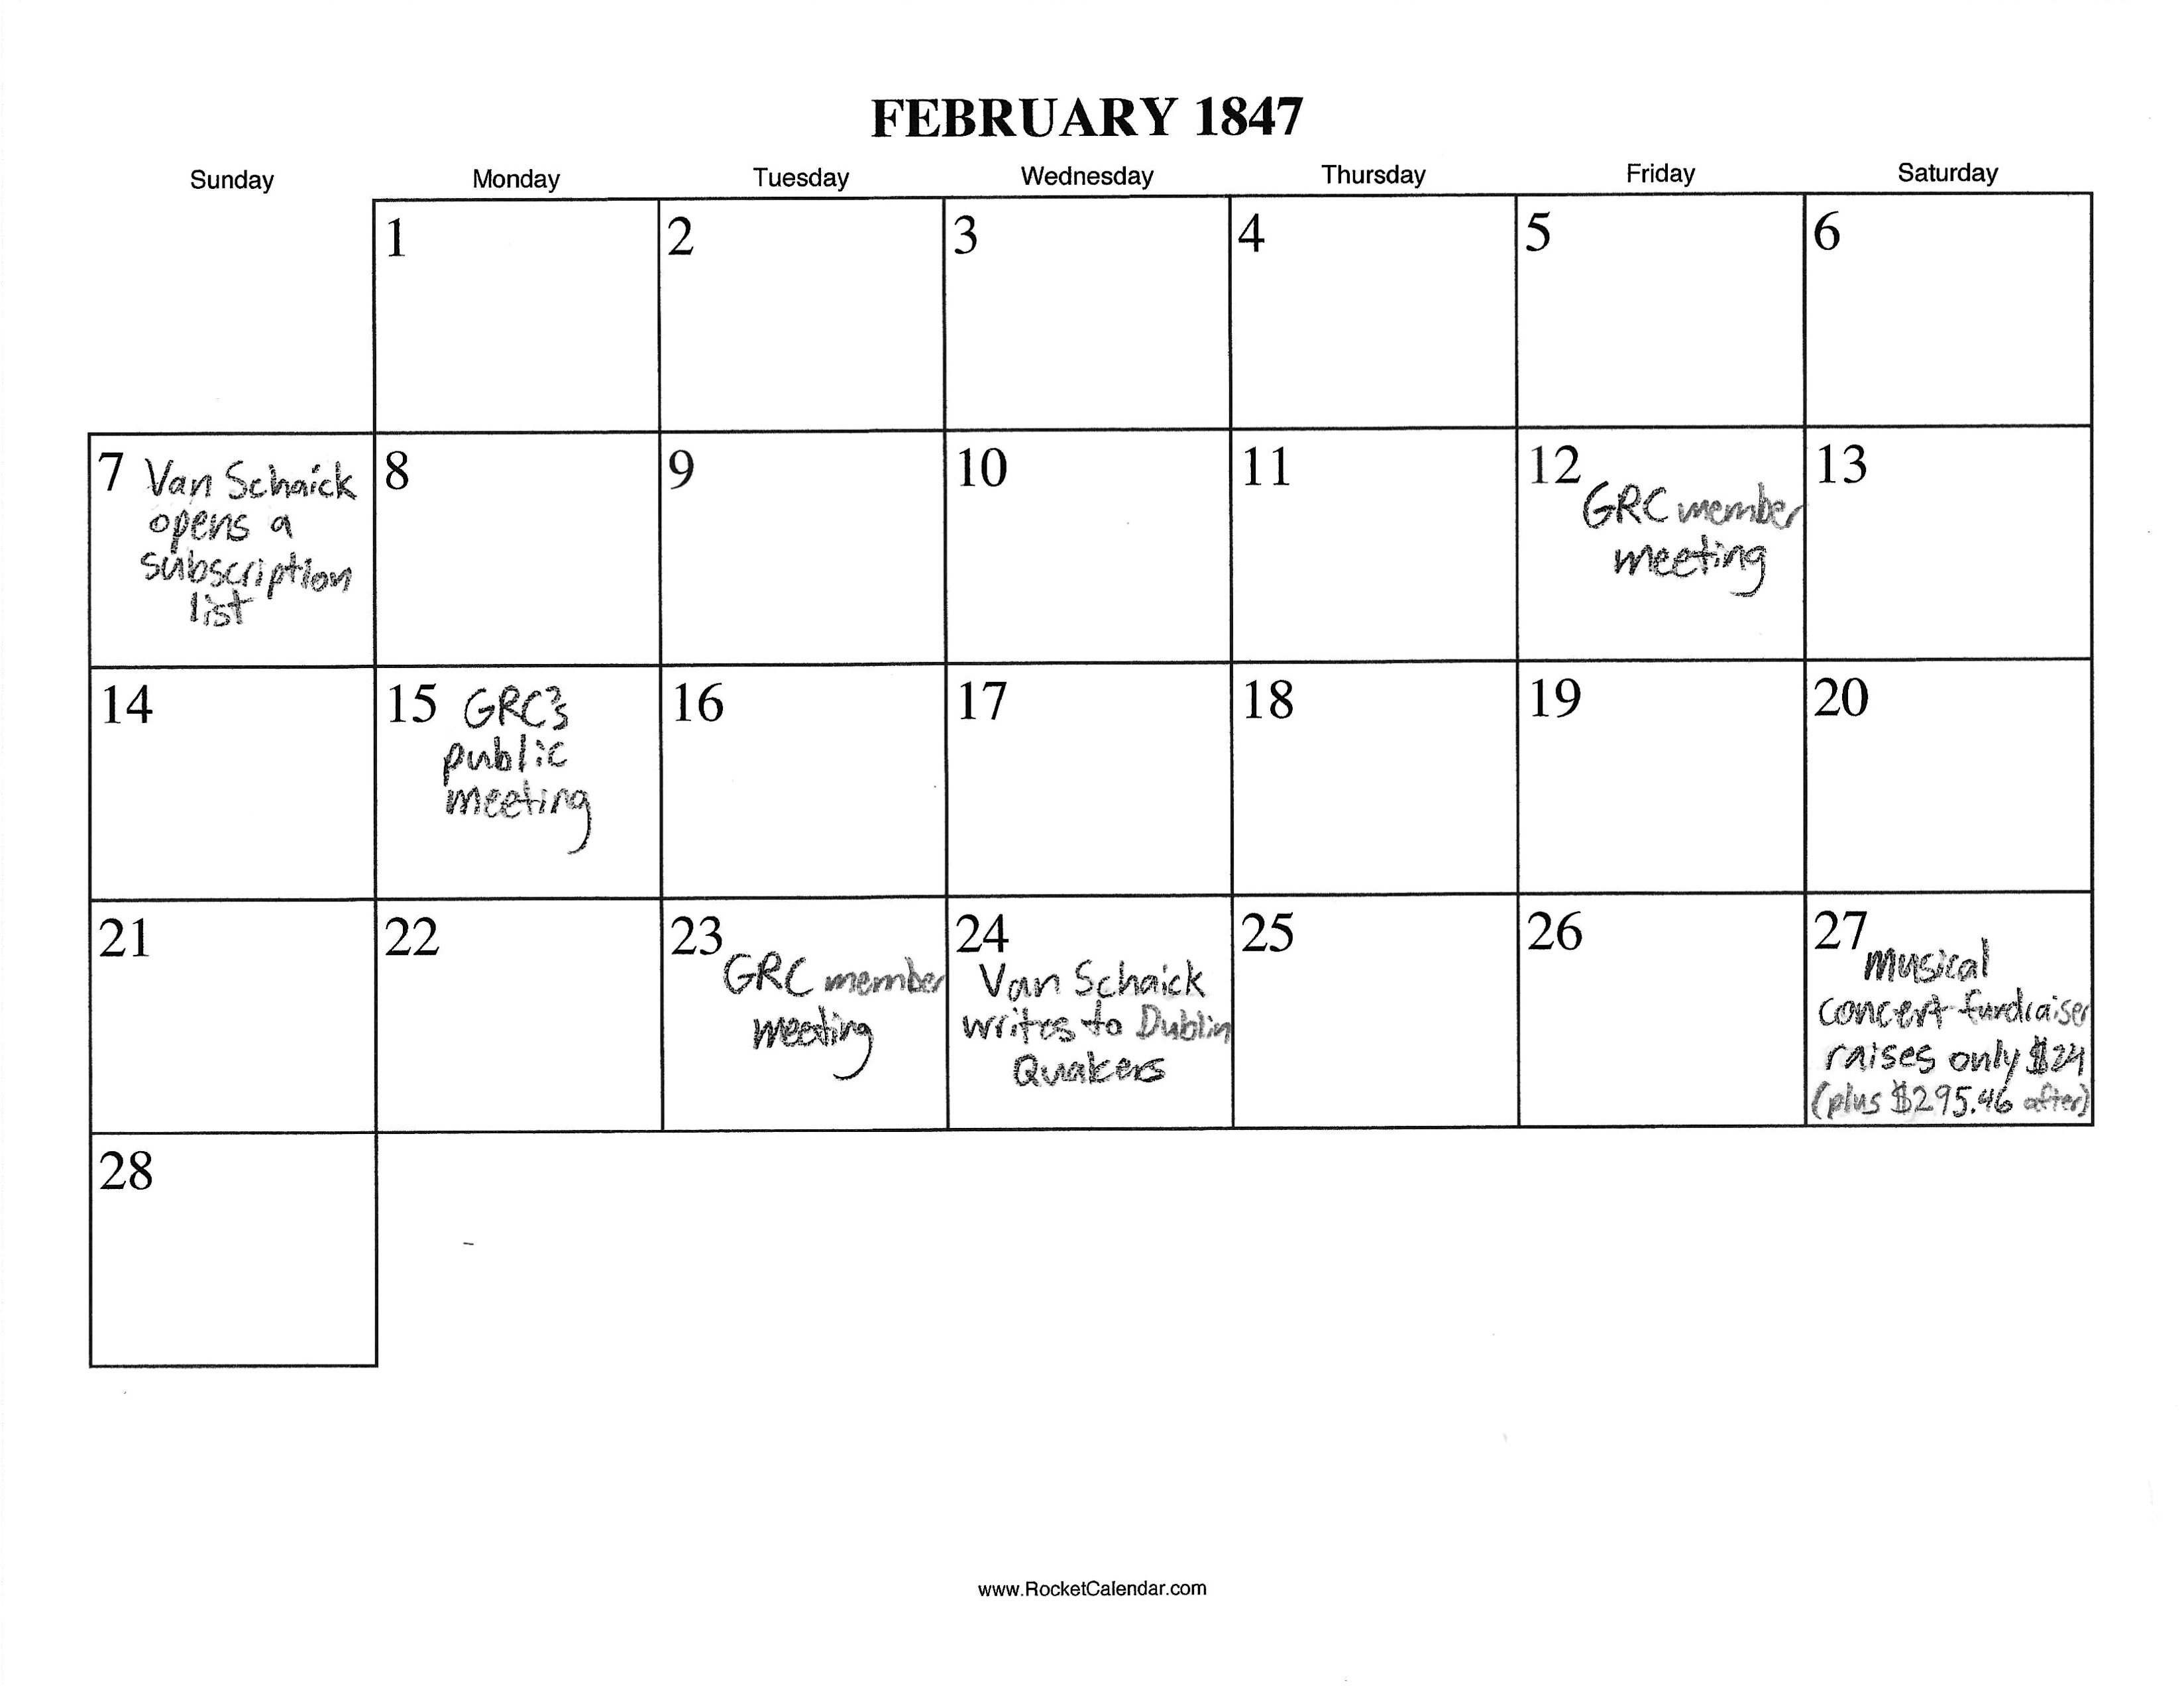 FEBRUARY 1847
Sunday Monday Tuesday Wednesday Thursday Friday Saturday
1 2 3 4 5 6
7 Van Schaick
opens a
subscription
list
8 9 10 11
12 GRC member
meeting
13
14
15 GRC's
public
meeting
16 17 18 19 20
21 22
23 GRC member
meeting
24
Van Schaick
writes to Dublin
Quakers
25 26
27 Musical
concert fundraiser
raises only $24
(plus $295.46 after)
28
www.RocketCalendar.com